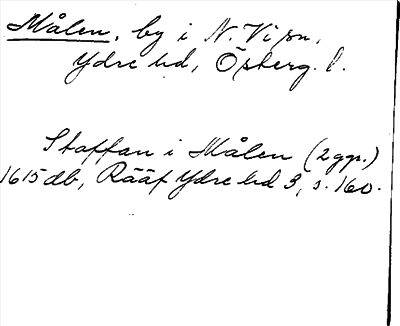 Målen, by i N. Vi sn,
Ydre hd, Österg. l.
Staffan i Målen (2 ggr.)
1615 db, Rääf Ydre hd 3, s. 160.